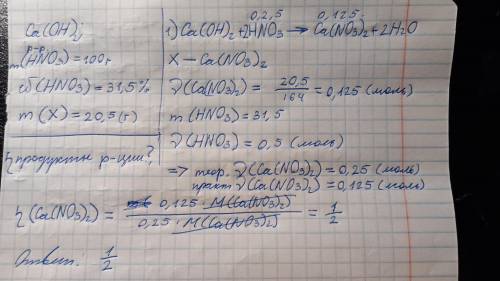 Ca(OH)₂;
m р-р (HNO₃) = 100г
ω(HNO₃) = 31,5%
m(X) = 20,5(г)
η продукты р-ции?
0,25 0,125
1) Ca(OH)₂ + 2HNO₃ → Ca(NO₃)₂ + 2H₂O
X – Ca(NO₃)₂
ν(Ca(NO₃)₂) = 20,5/164 = 0,125 (моль)
m(HNO₃) = 31,5
ν(HNO₃) = 0,5 (моль)
=> теор. ν(Ca(NO₃)₂) = 0,25 (моль)
практ ν(Ca(NO₃)₂) = 0,125 (моль)
η(Ca(NO₃)₂) = 0,125 · M(Ca(NO₃)₂) / 0,25 · M(Ca(NO₃)₂) = 1/2
Ответ. 1/2